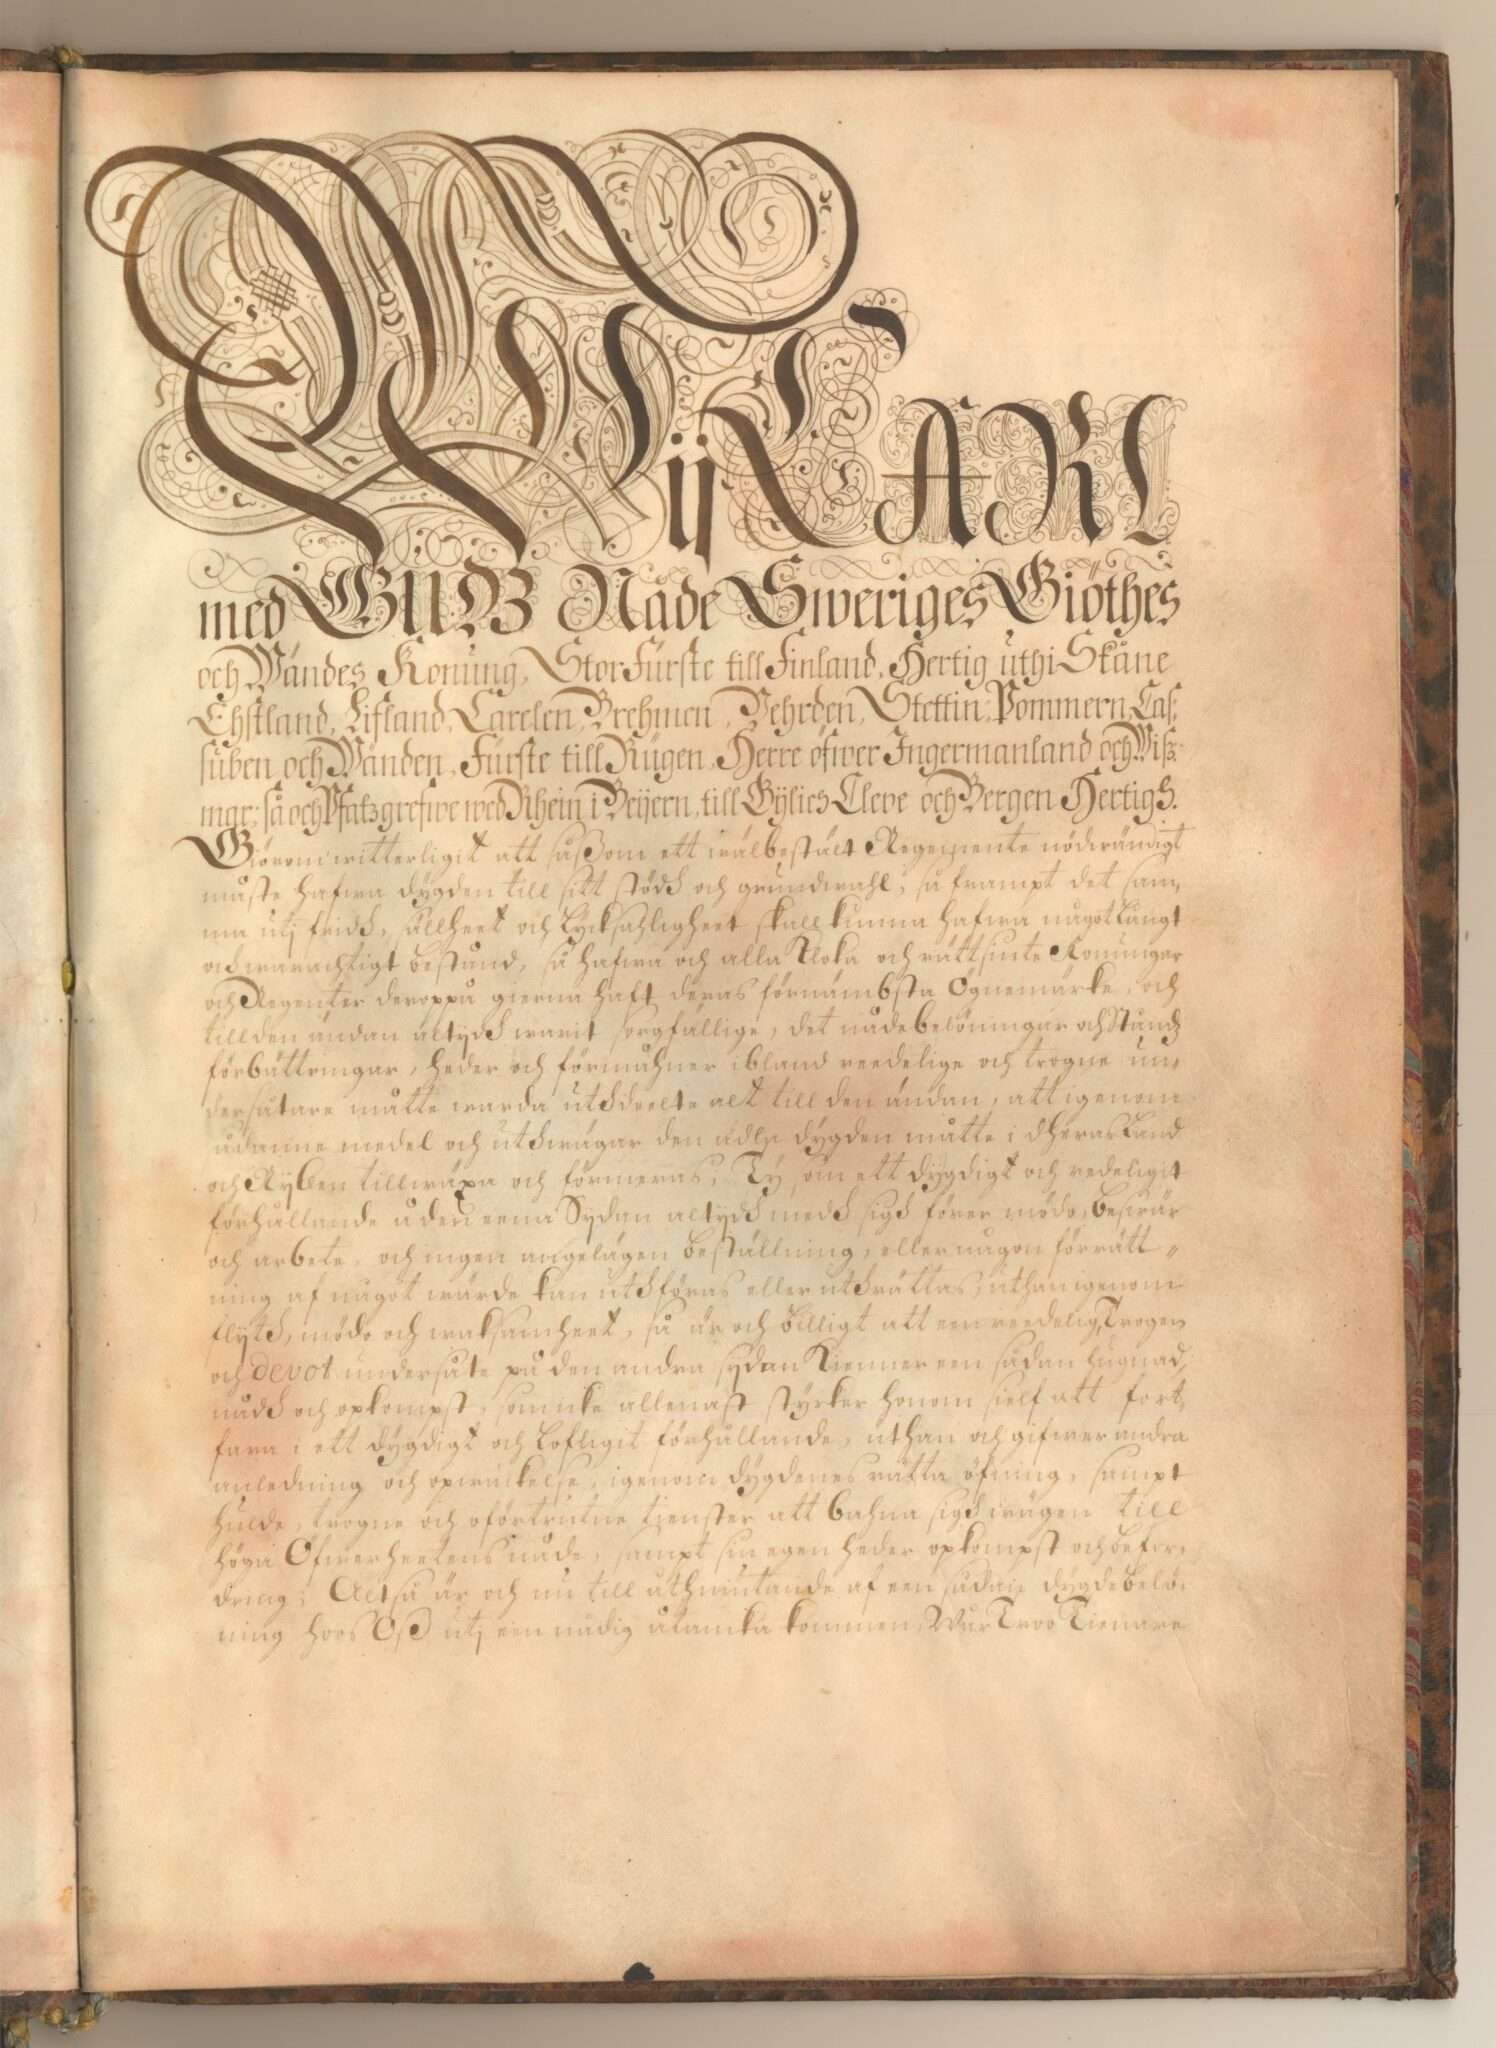 Wij CARL
med GUDZ Nåde Sweriges Giöthes
och Wändes Konung, StorFürste till Finland, Hertig uthi Skåne
Ehstland, Lifland, Carelen, Brehmen, Vehrden, Stettin, Pommern, Cas;
suben och Wänden, Fürste till Rügen, Herre öfwer Ingermanland och Wiß:
mar; så och Pfaltzgrefwe wed Rhein i Beijern, till Gylich Cleve och Bergen Hertigh.
Giörom witterligit att såßom ett wälbestält Regemente nödwändigt
måste hafwa dygden till sitt stödh och grundwahl, så frampt det sam,
ma utj fridh, sällheet och lycksahligheet skall kunna hafwa något långt
och warachtigt bestånd, så hafwa och alla Kloka och rättsinte Konungar
och Regenter deroppå gierna haft deras förnämbsta Ögnemärke, och
till den ändan altydh warit sorgfällige, det nådebelöningar och Stånds
förbättringar, heder och förmåhner ibland reedelige och trogne un,
dersåtare måtte warda uthdeelte alt till den ändan, att igenom
sådanne medel och uthwägar den ädla dygden måtte i dheras Land
och Ryken tillwäxa och förmeras; Ty som ett dygdigt och redeligit
förhållande å den eena Sydan altydh medh sigh förer mödo, beswär
och arbete, och ingen angelägen beställning, eller någon förrätt„
ning af något wärde kan uthföras eller uthrättas, uthan igenom
flyth, mödo och waksamheet, så är och billigt att een reedelig, Trogen
och devot undersåte på den andra sydan Kienner een sådan hugnad,
nådh och opkompst, som icke allenast styrker honom sielf att fort,
fara i ett dygdigt och lofligit förhållande, uthan och gifwer andra
anledning och opwäckelse, igenom dygdenes rätta öfning, sampt
hulde, trogne och oförtrutne tienster att bahna sigh wägen till
höga Öfwerheetens nåde, sampt sin egen heder opkompst och befor,
dring; Altså är och nu till åthniutande af een sådan dygdebelö,
ning hoos Oß utj een nådig åtancka kommen, Wår Troo Tienare